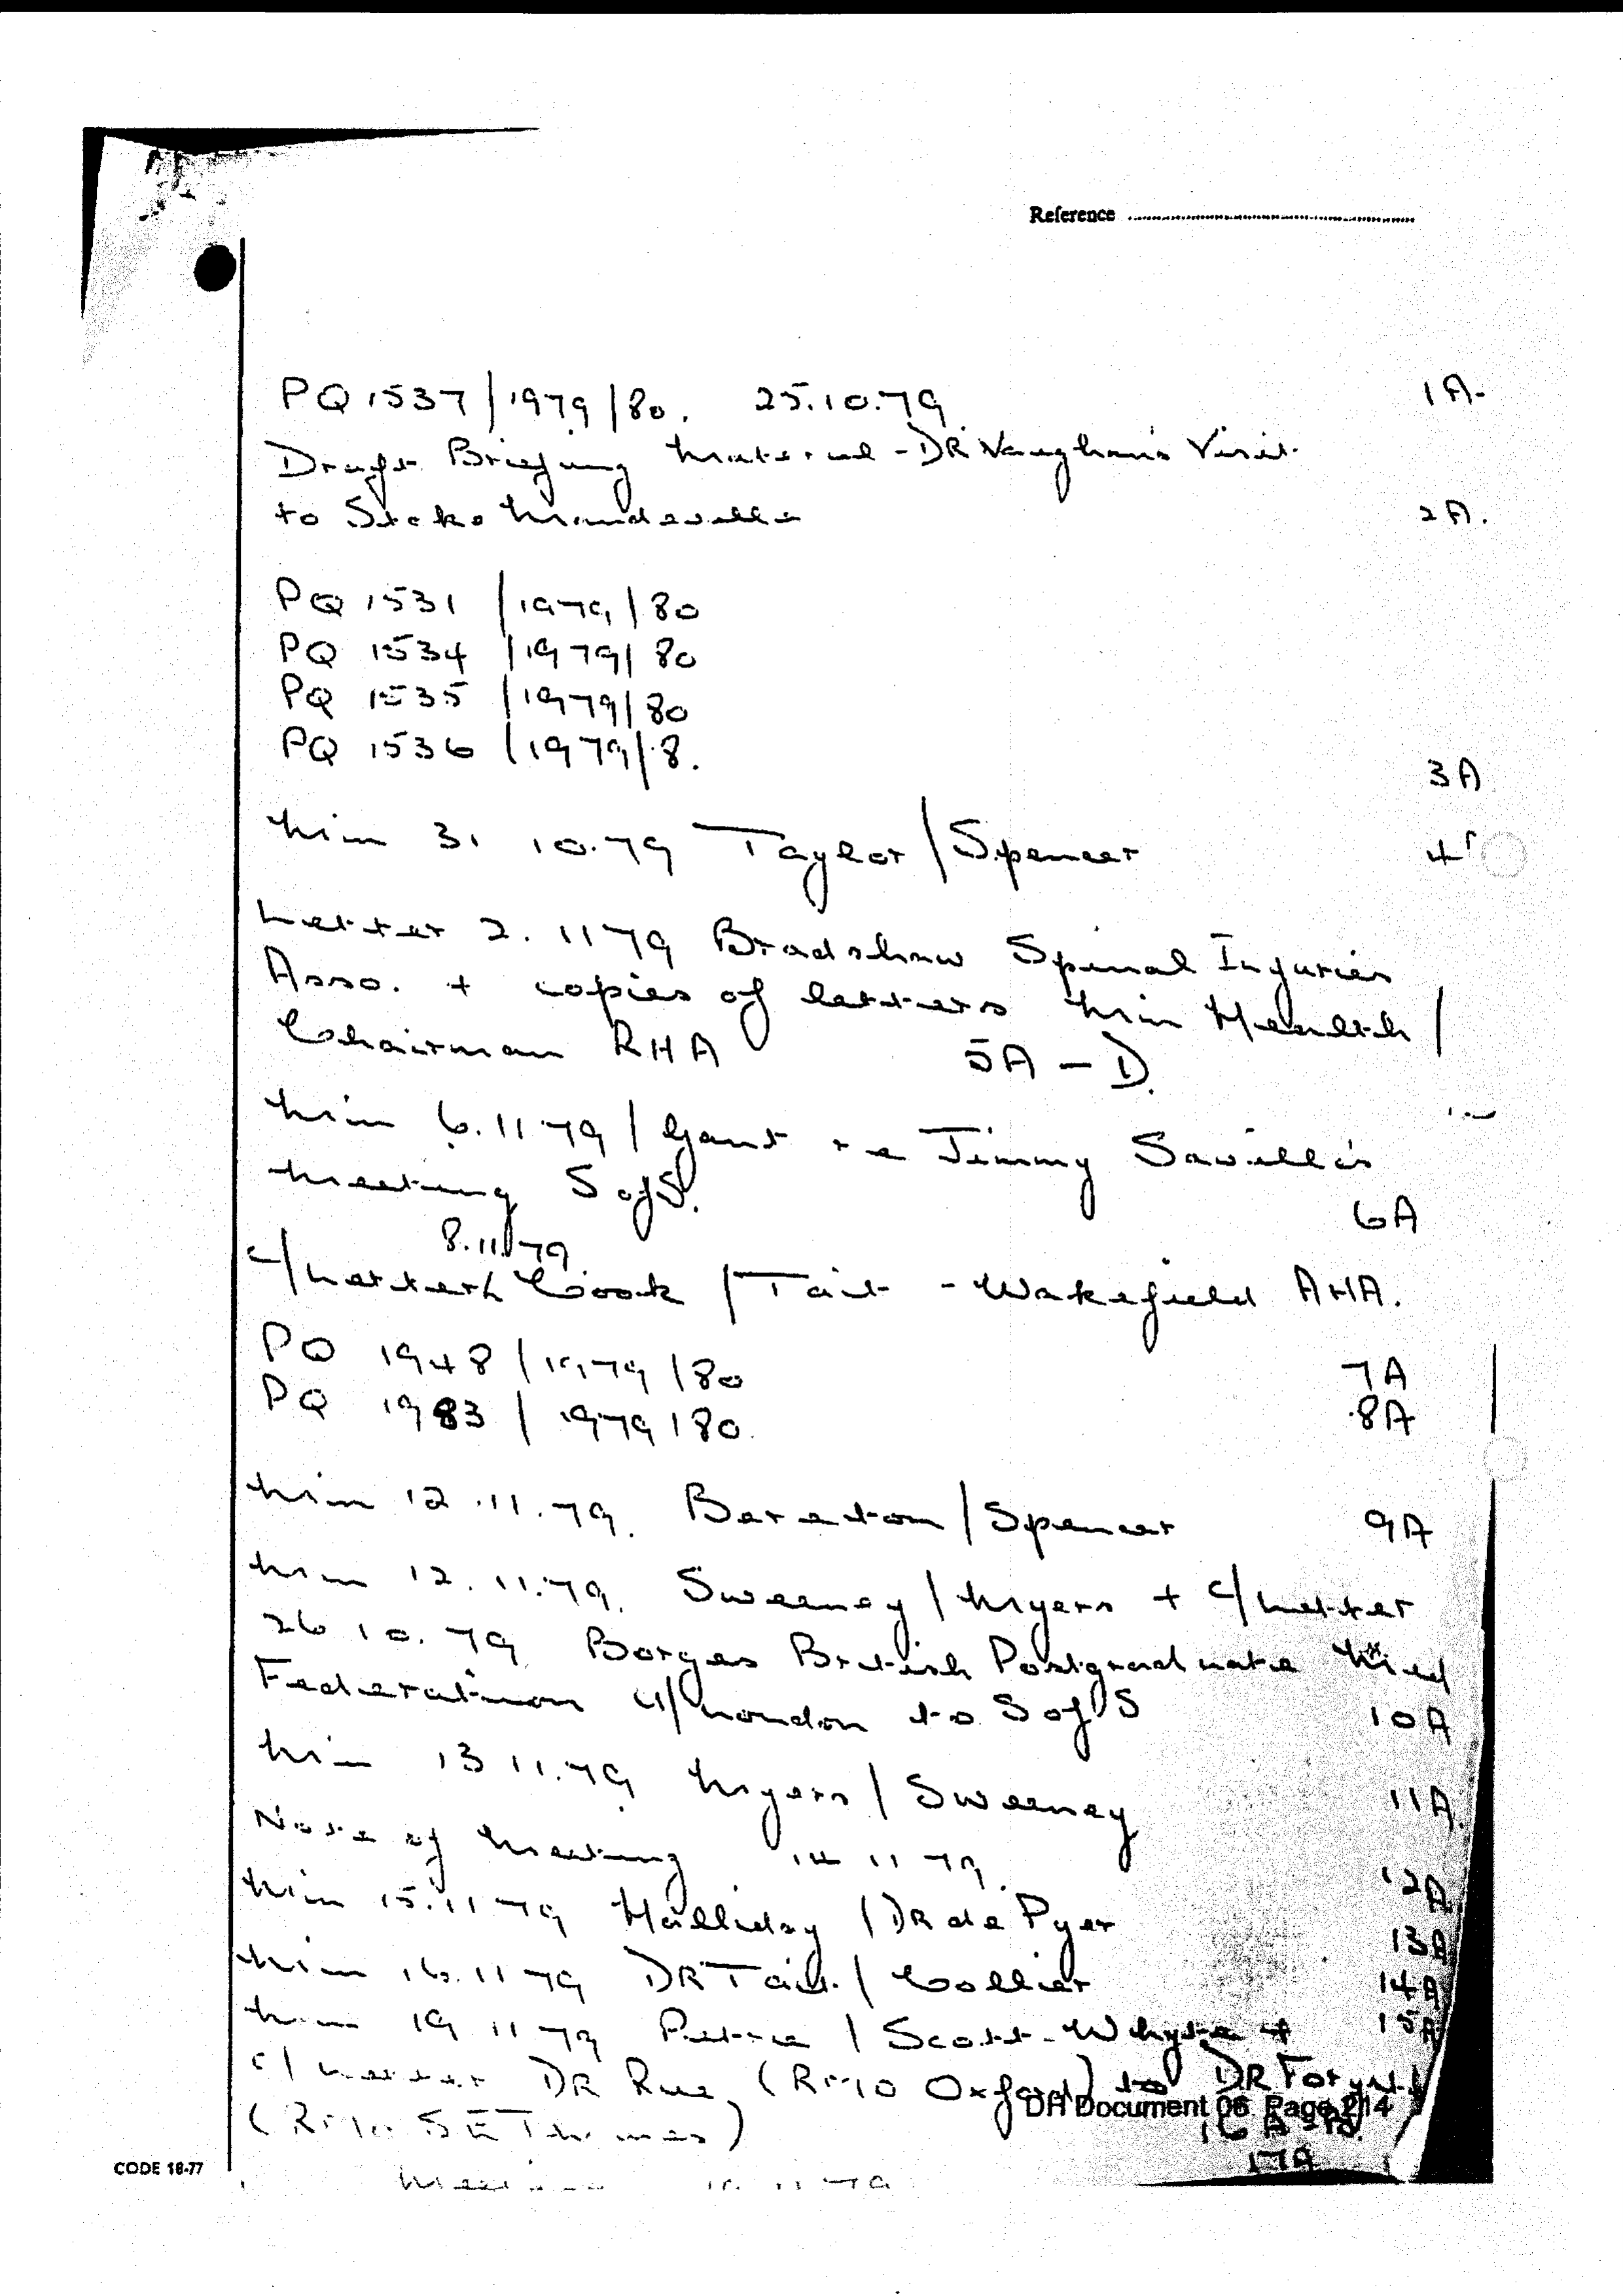 Reference
PQ 1537/1979/80. 25.10.79 1A-
Draft Briefing Material - DR Vaughan's Visit
to Stoke Mandeville 2A.
PQ 1531 /1979/80
PQ 1534 /1979/80
PQ 1535 /1979/80
PQ 1536 /1979/8.
3A
Min 31 10.79 Taylor/Spencer 4
Letter 2.11 79 Bradshaw Spinal Injuries
Asso. + copies of letters Min Health/
Chairman RHA 5A - D.
Min 6.11.79 / Gant re Jimmy Saville's
Meeting S of S. 6A
8.11.79
c/Letter Cook / Tait - Wakefield AHA.
PQ 1948/1979/80 7A
PQ 1983 / 1979/80. 8A
Min 12.11.79. Bereton/Spencer 9A
Min 12.11.79. Sweeney/Myers + c/Letter
26 10.79 Borges British Postgraduate Med
Federation U/London to S of S 10A
Min 13 11.79 Myers/Sweeney 11A.
Note of Meeting 14 11 79. 12A
Min 15.11 79 Halliday / DR de Pyer 13A
Min 16.11 79 DR Tait / Collier 14A
Min 19 11 79 Petrie / Scott-Whyte + 15A
c/ Letter DR Rue (RMO Oxford) to DR
(RMO SE Thames) 16A
DH Document 06 Page 2/14
17A
CODE 18-77
11 79